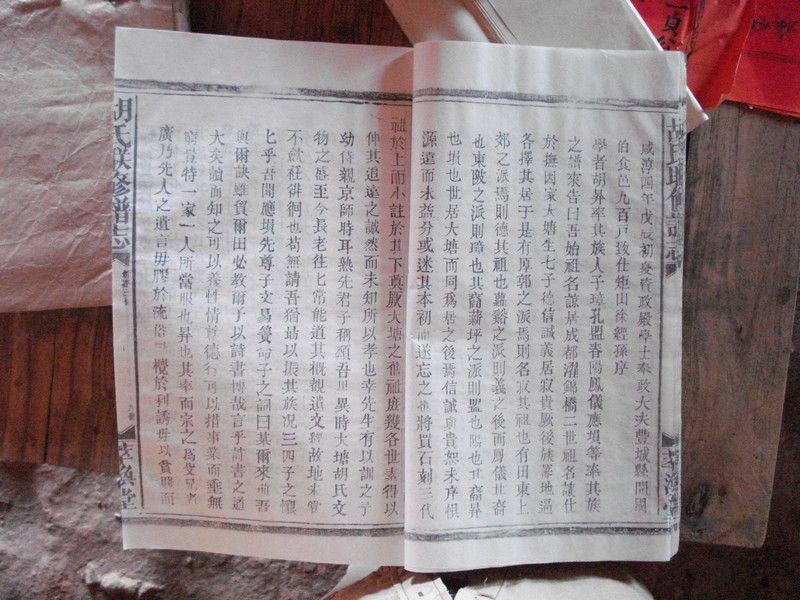 咸淳四年戊辰初夏資政殿學士奉政大夫豐城縣開國
伯食邑九百戶致仕矩山徐經孫序
學者胡昇率其族人子璋孔盟春陽鳳儀應垻等奉其族
之譜來告曰吾始祖名諒居成都濯錦橋二世祖名讓仕
於撫因家大塘生七子德信誠義居寂貴厥後族蕃地逼
各擇其居于是有厚郭之派焉則名寂其祖也有田東上
郊之派焉則德其祖也蘿谿之派則義之後而鳳儀其裔
也東陂之派則璋也其裔薪坪之派則盟也陽也其裔昇
也垻也世居大塘而同爲居之後焉信誠與貴恕未序恨
源遠而未益分或迷其本初而遂忘之也將買石刻三代
祖於上而小註於其下奠厥大塘之舊祖庭幾各世素得以
伸其追遠之誠然而未知所以孝也幸先生有以訓之予
幼侍親京師時耳熟先君子稱頌吾里異時大塘胡氏文
物之盛至今長老往七常能道其概覩遺文經故地未嘗
不歔欷徘徊也苟無請吾猶將以振其族况三四子之懼
七乎吾聞應垻先尊子文易簀命子之詞曰某爾來前吾
與爾訣雖貧爾田必教爾子以詩書博哉言乎詩書之道
大矣傾而知之可以養性情尊德行可以措事業而垂無
窮豈特一家一人所當服也昇也其率而宗之爲父兄者
廣乃先人之遺言毋膠於流俗毋攪於利誘毋以貧賤而
胡氏聯修譜志
萃渙堂